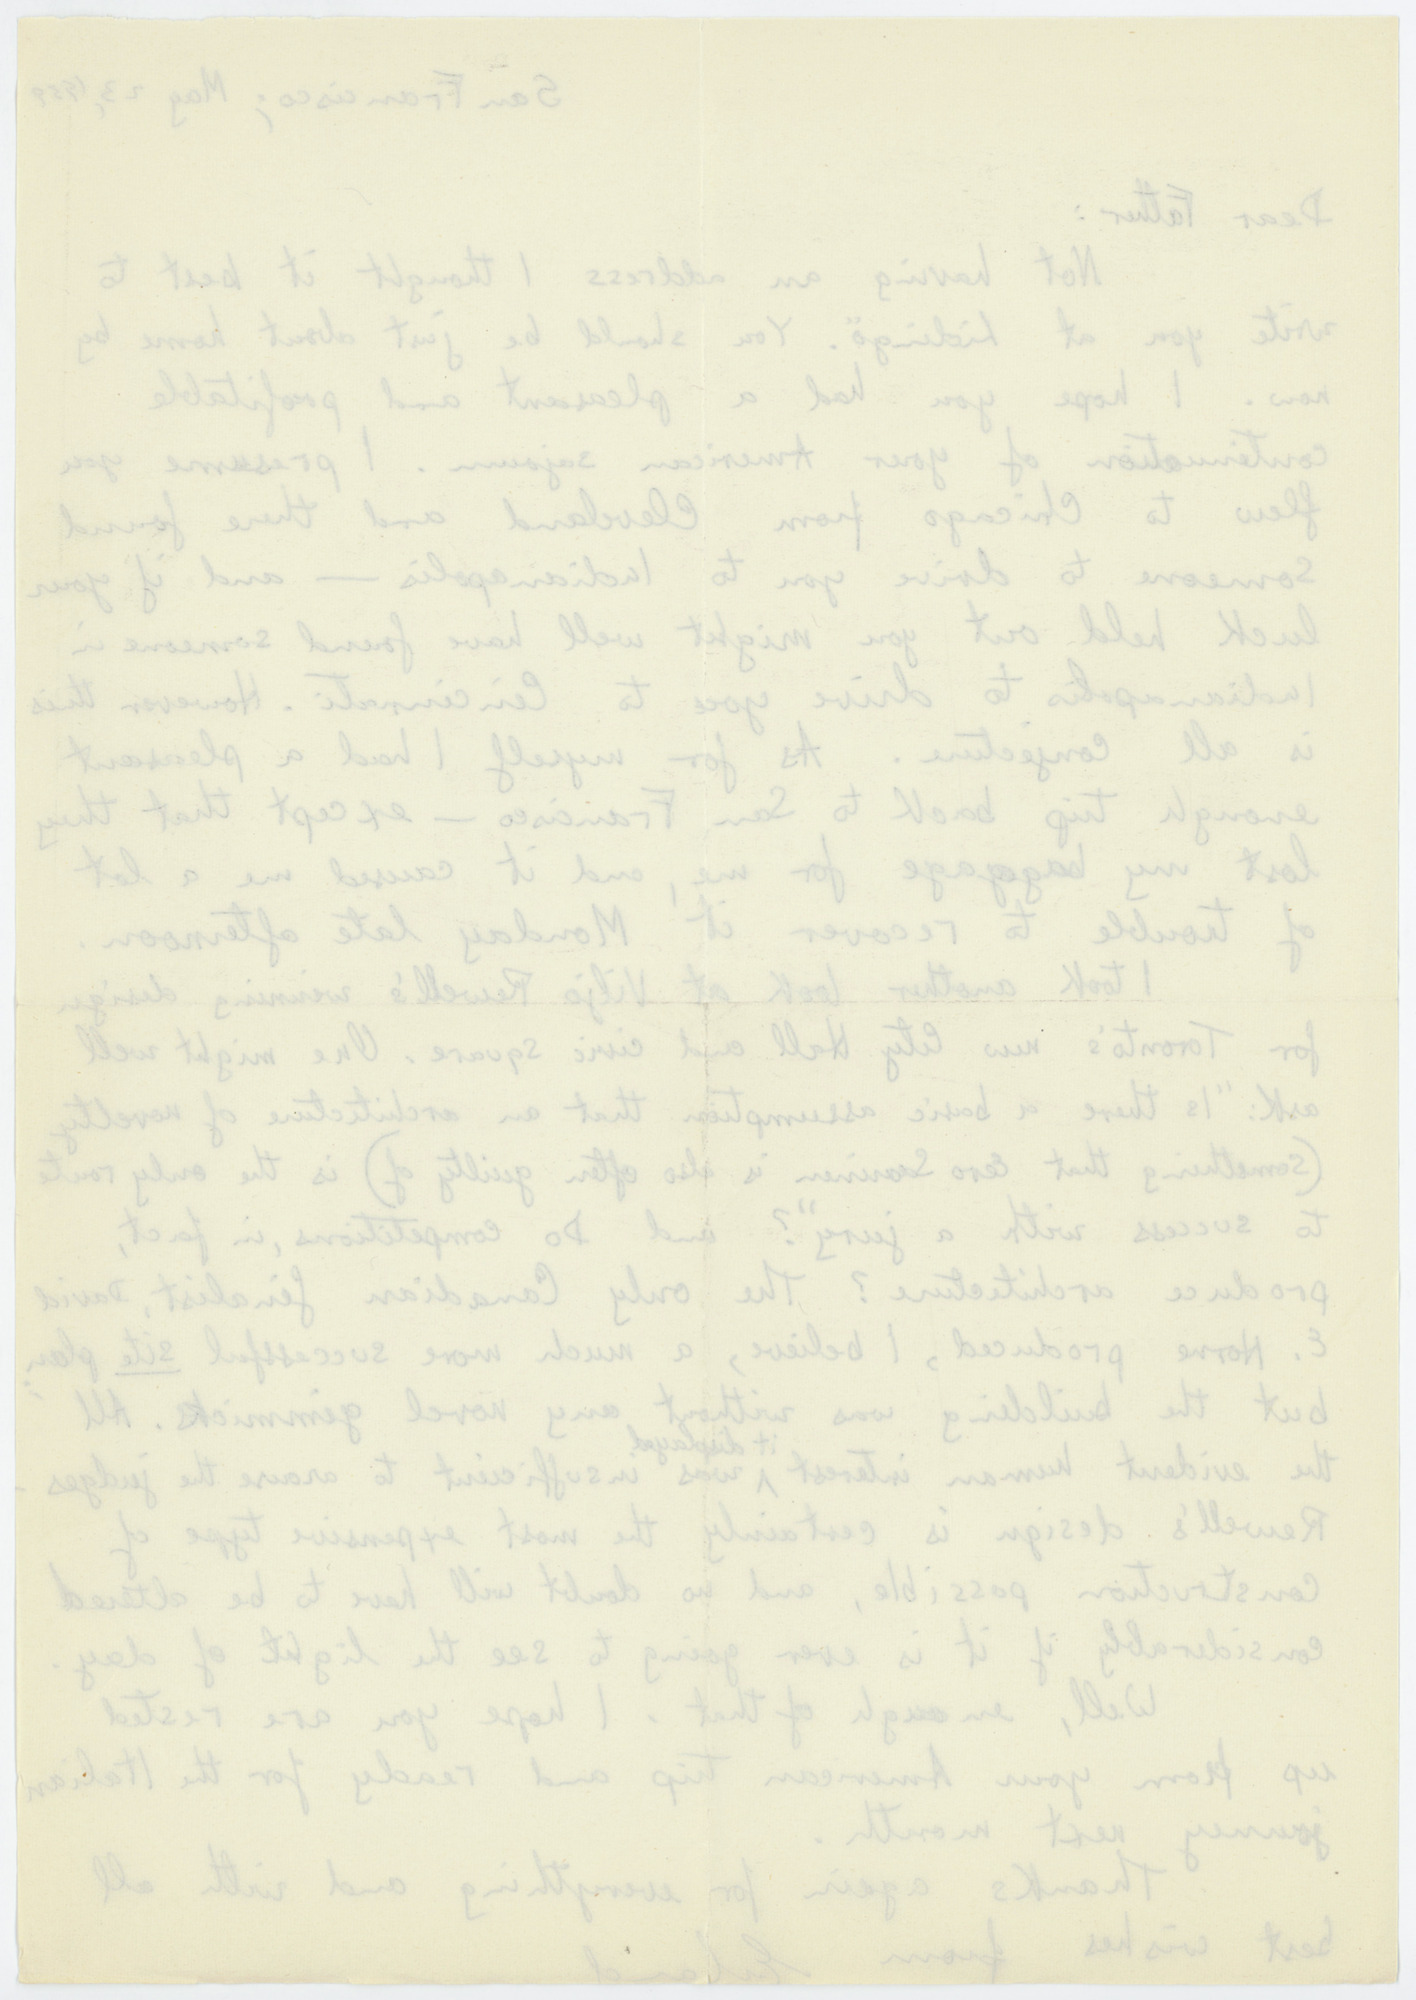 San Francisco; May 23, 1959
Dear Father:
Not having an address I thought it best to
write you at Lidingö. You should be just about home by
now. I hope you had a pleasant and profitable
continuation of your American sojourn. I presume you
flew to Chicago from Cleveland and there found
someone to drive you to Indianapolis — and if your
luck held out you might well have found someone in
Indianapolis to drive you to Cincinnati. However this
is all conjecture. As for myself I had a pleasant
enough trip back to San Francisco — except that they
lost my baggage for me, and it caused me a lot
of trouble to recover it Monday late afternoon.
I took another look at Viljo Rewell's winning design
for Toronto's new City Hall and civic square. One might well
ask: "Is there a basic assumption that an architecture of novelty
(something that Eero Saarinen is also often guilty of) is the only route
to success with a jury"? and Do competitions, in fact,
produce architecture? The only Canadian finalist, David
E. Horne produced, I believe, a much more successful site plan;
but the building was without any novel gimmicks. All
the evident human interest it displayed was insufficient to arouse the judges.
Rewell's design is certainly the most expensive type of
construction possible, and no doubt will have to be altered
considerably if it is ever going to see the light of day.
Well, enough of that. I hope you are rested
up from your American trip and ready for the Italian
journey next month.
Thanks again for everything and with all
best wishes from